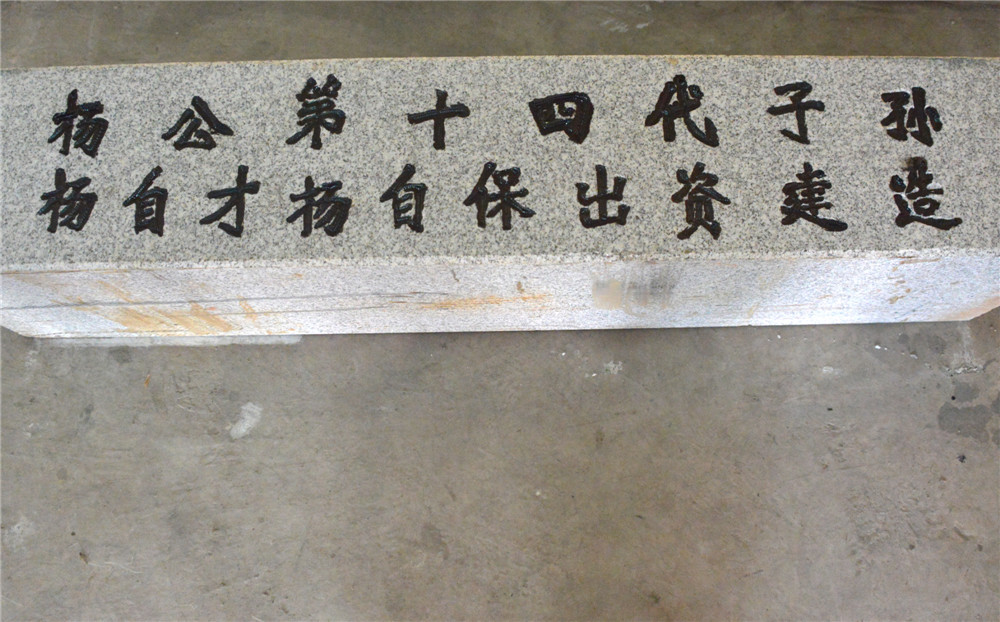 杨公第十四代子孙
杨自才杨自保出资建造